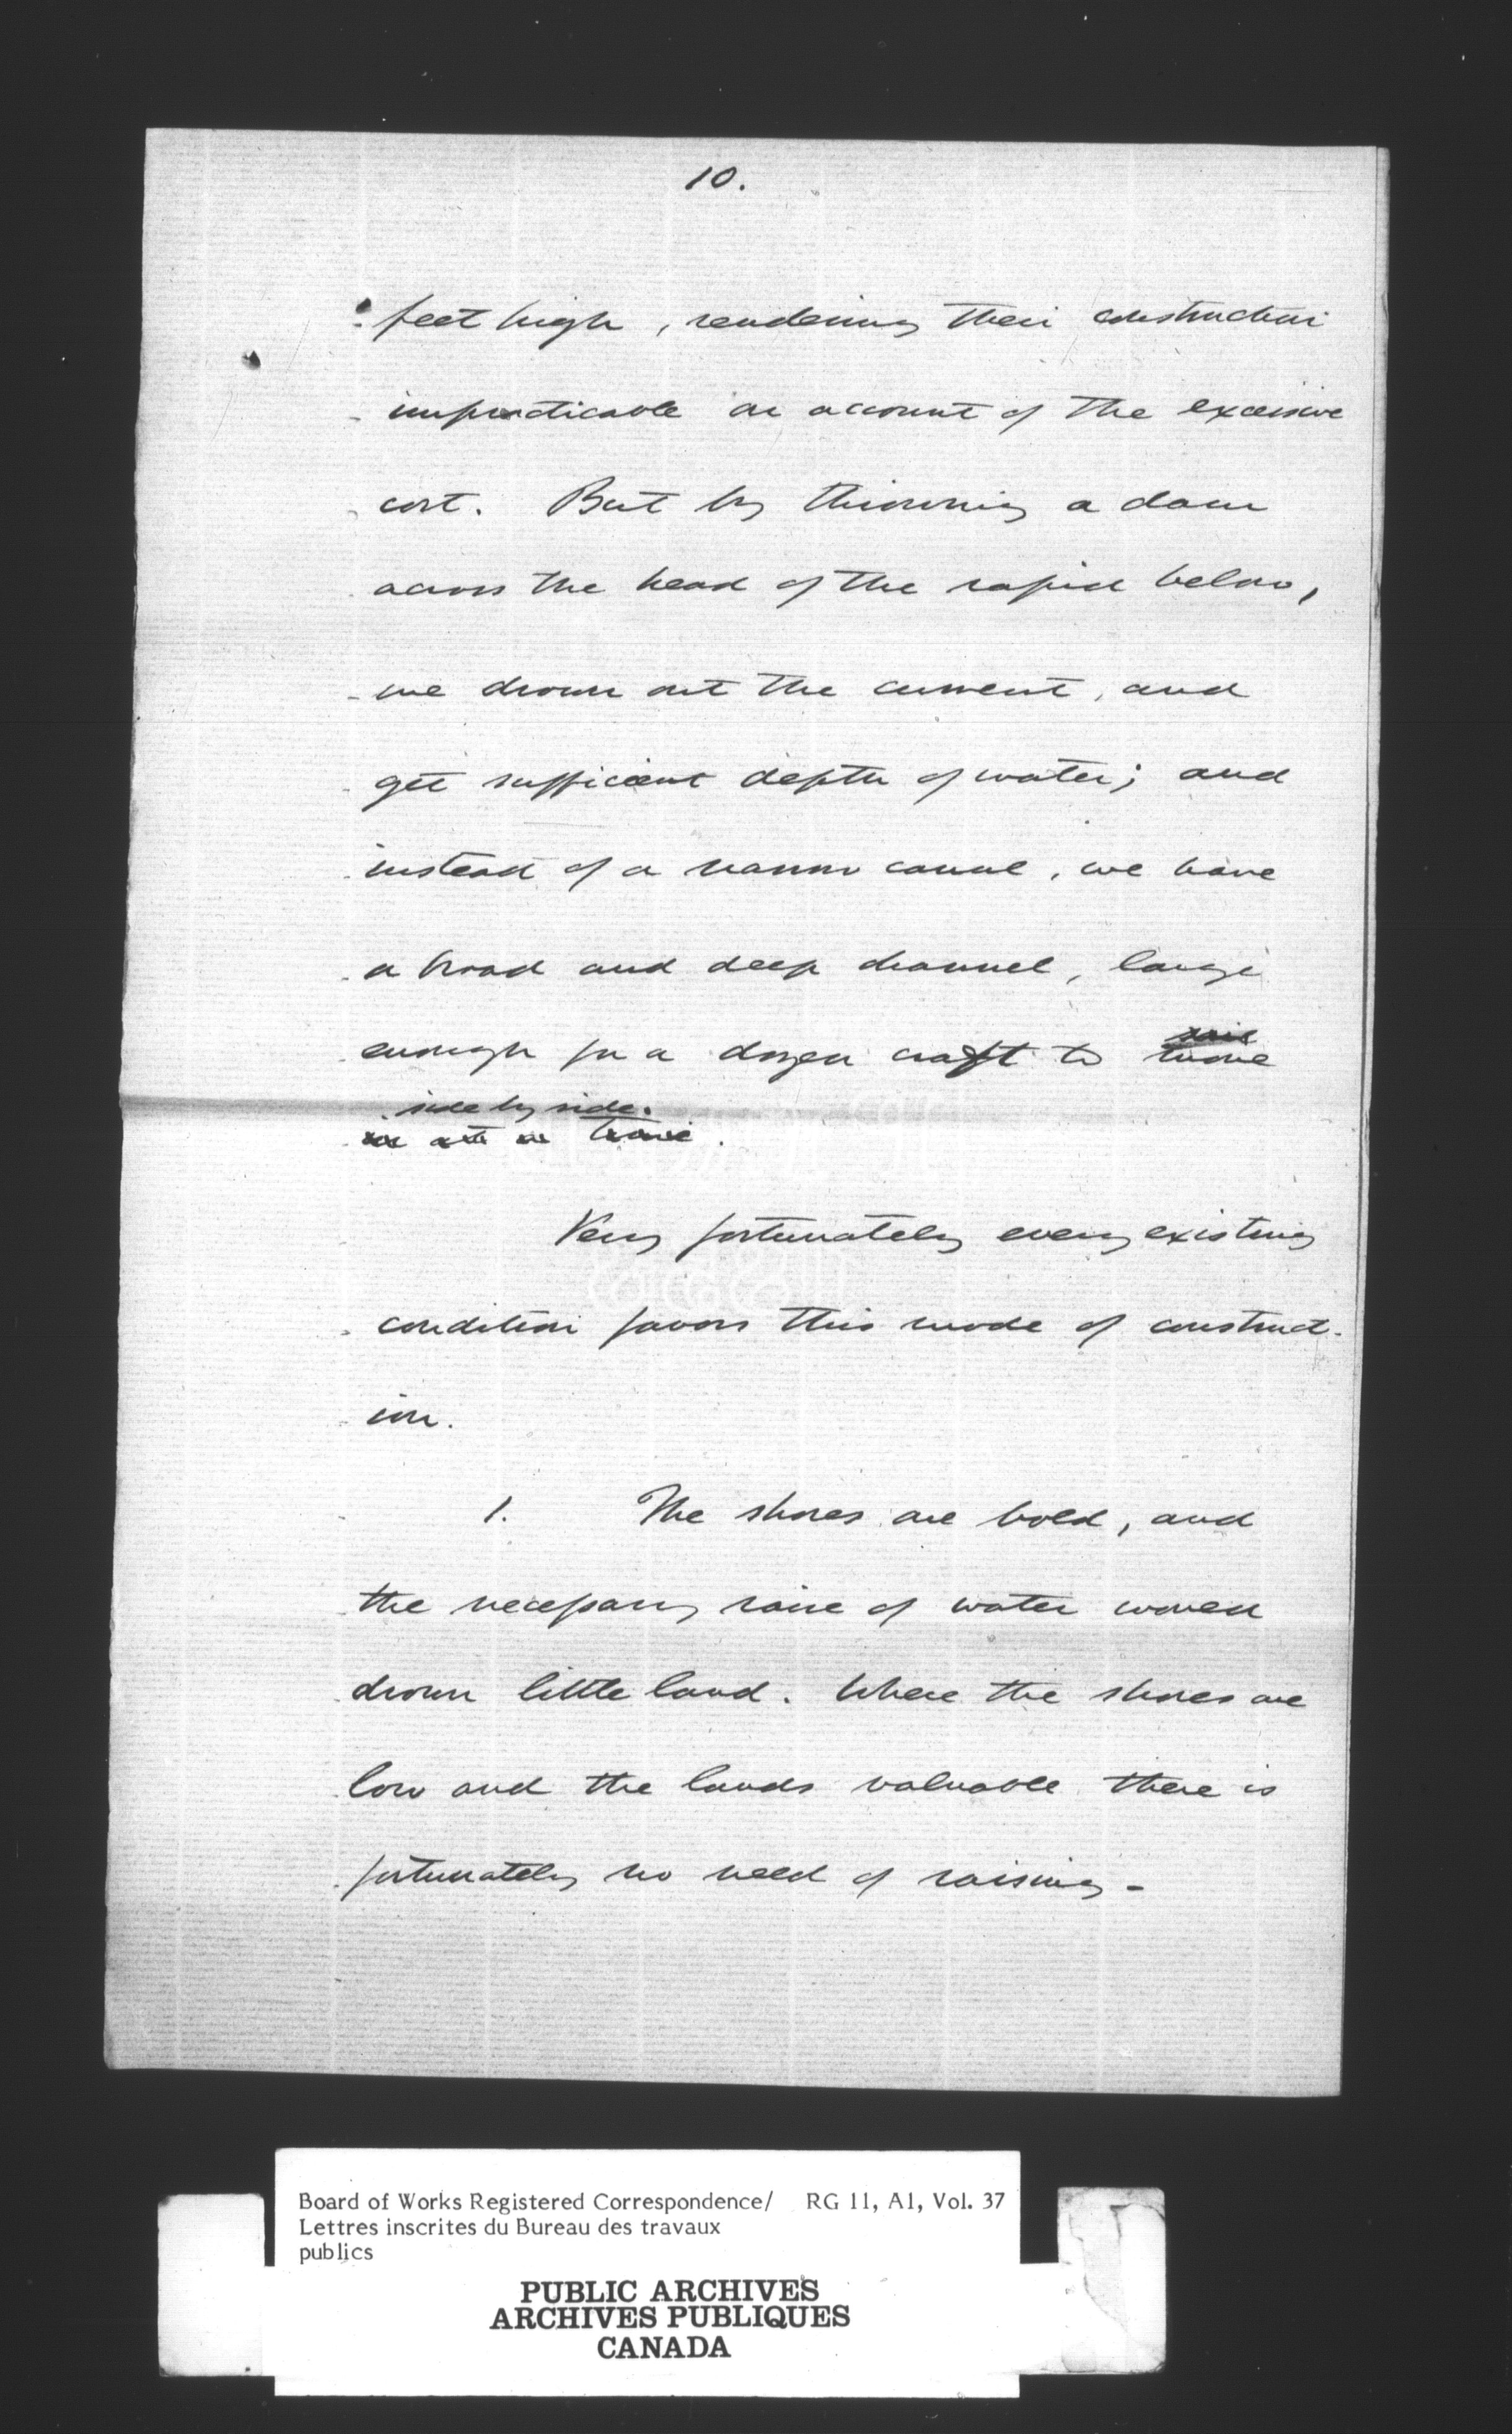 10.
feet high, rendering their construction
impracticable on account of the excessive
cost. But by throwing a dam
across the head of the rapid below,
we drown out the current, and
get sufficient depth of water; and
instead of a narrow canal, we have
a broad and deep channel, large
enough for a dozen craft to move
side by side.
Very fortunately every existing
condition favors this mode of construct-
ion.
1. The shores are bold, and
the necessary raise of water would
drown little land. Where the shores are
low and the lands valuable there is
fortunately no need of raising -
Board of Works Registered Correspondence/ RG 11, A1, Vol. 37
Lettres inscrites du Bureau des travaux
publics
PUBLIC ARCHIVES
ARCHIVES PUBLIQUES
CANADA